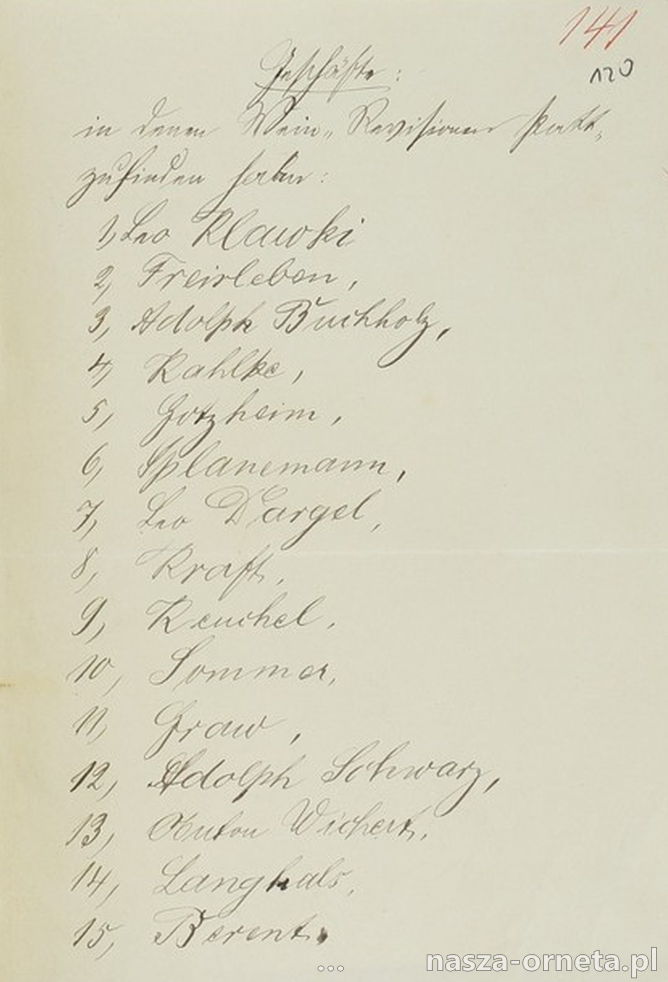 141
120
Geschäfte:
in denen Wein-Revisionen statt-
zufinden haben:
1, Leo Klawki
2, Freisleben,
3, Adolph Buchholz,
4, Kahlke,
5, Gotzheim,
6, Splanemann,
7, Leo Dargel,
8, Kraft,
9, Keuchel,
10, Sommer,
11, Graw,
12, Adolph Schwarz,
13, Anton Wichert,
14, Langhals,
15, Berent,
... nasza-orneta.pl